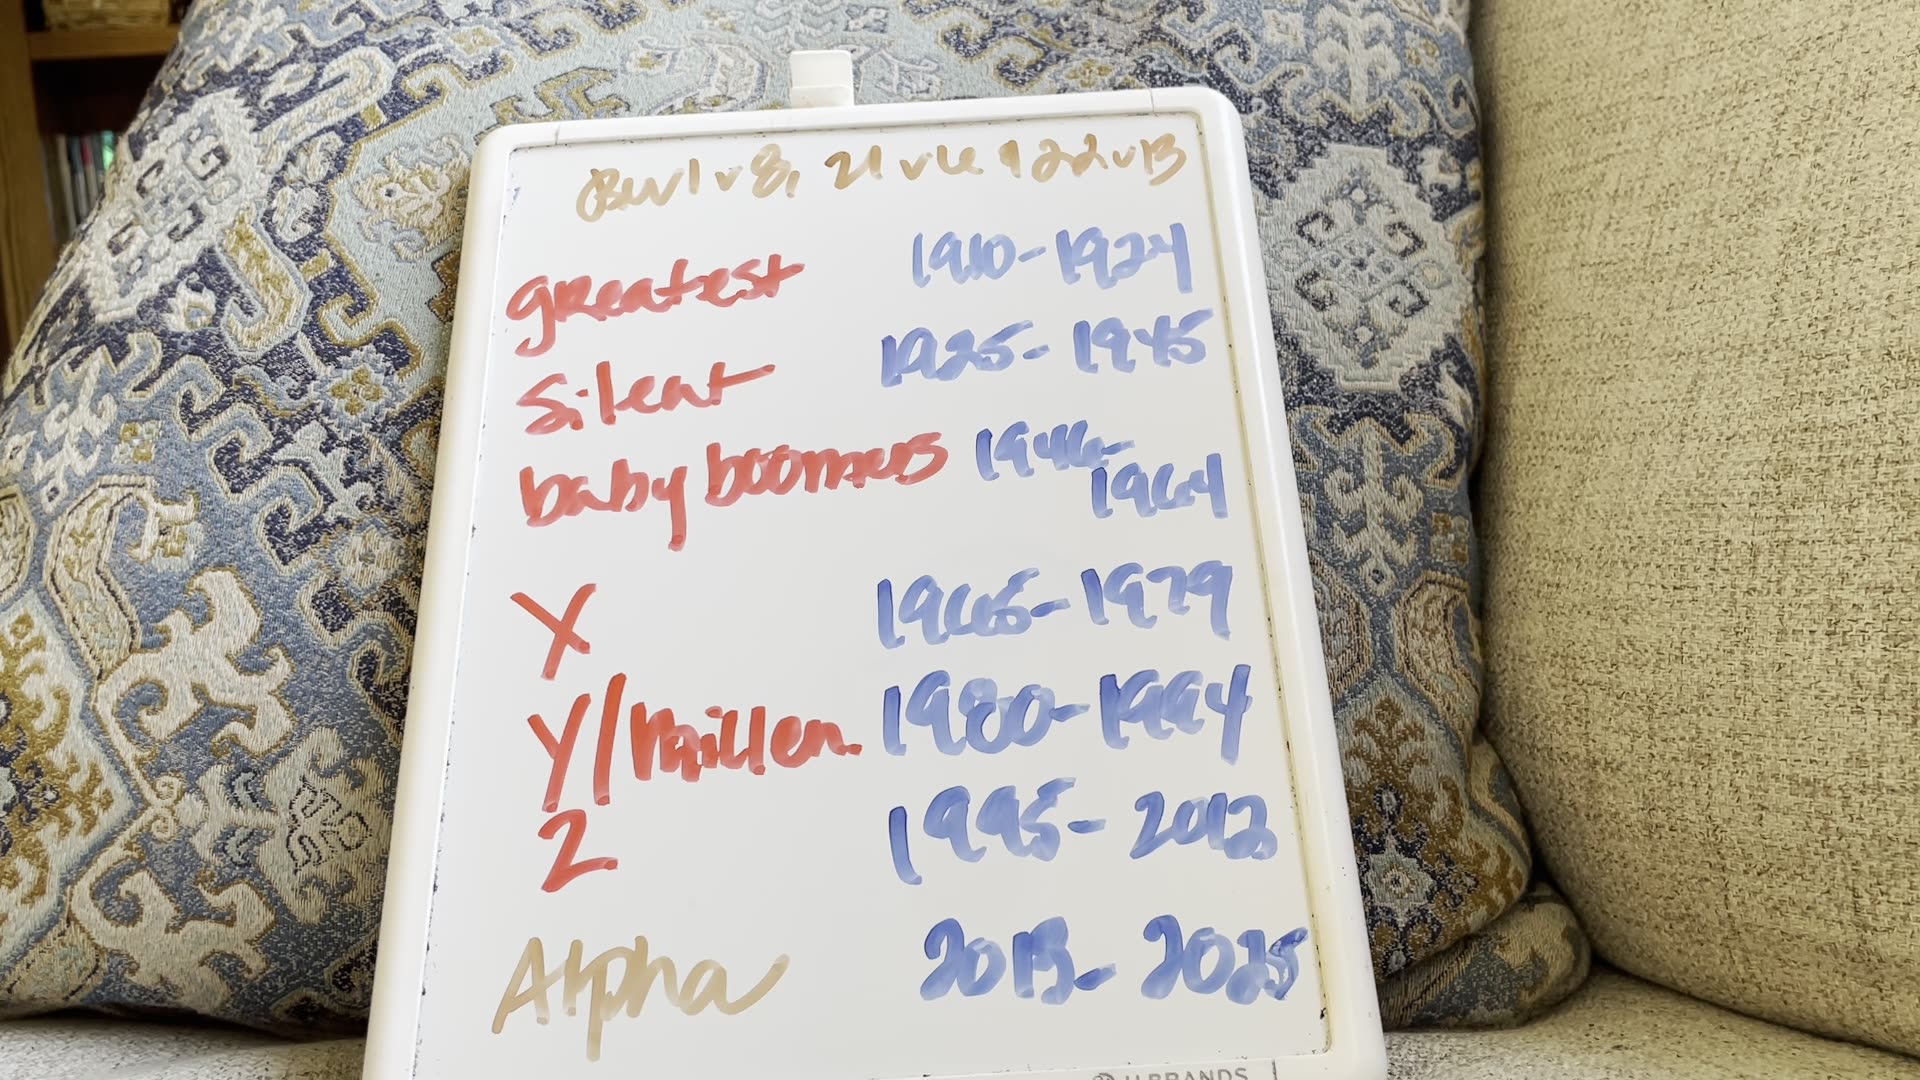 v 8, 21 v 6 9 22 v 13
greatest 1910-1924
Silent 1925-1945
baby boomers 1946-
1964
X 1965-1979
Y/Millen. 1980-1994
Z 1995-2012
Alpha 2013-2025
U BRANDS